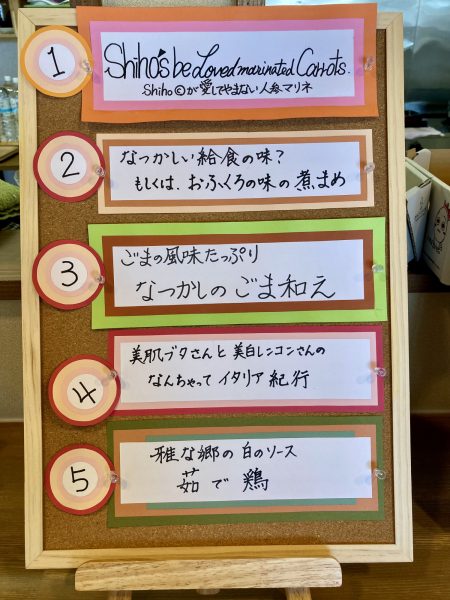 1
Shiho's beLoved marinated Carrots.
Shiho©が愛してやまない人参マリネ
2
なつかしい給食の味？
もしくは、おふくろの味の煮まめ
3
ごまの風味たっぷり
なつかしのごま和え
4
美肌ブタさんと美白レンコンさんの
なんちゃってイタリア紀行
5
雅な郷の白のソース
茹で鶏